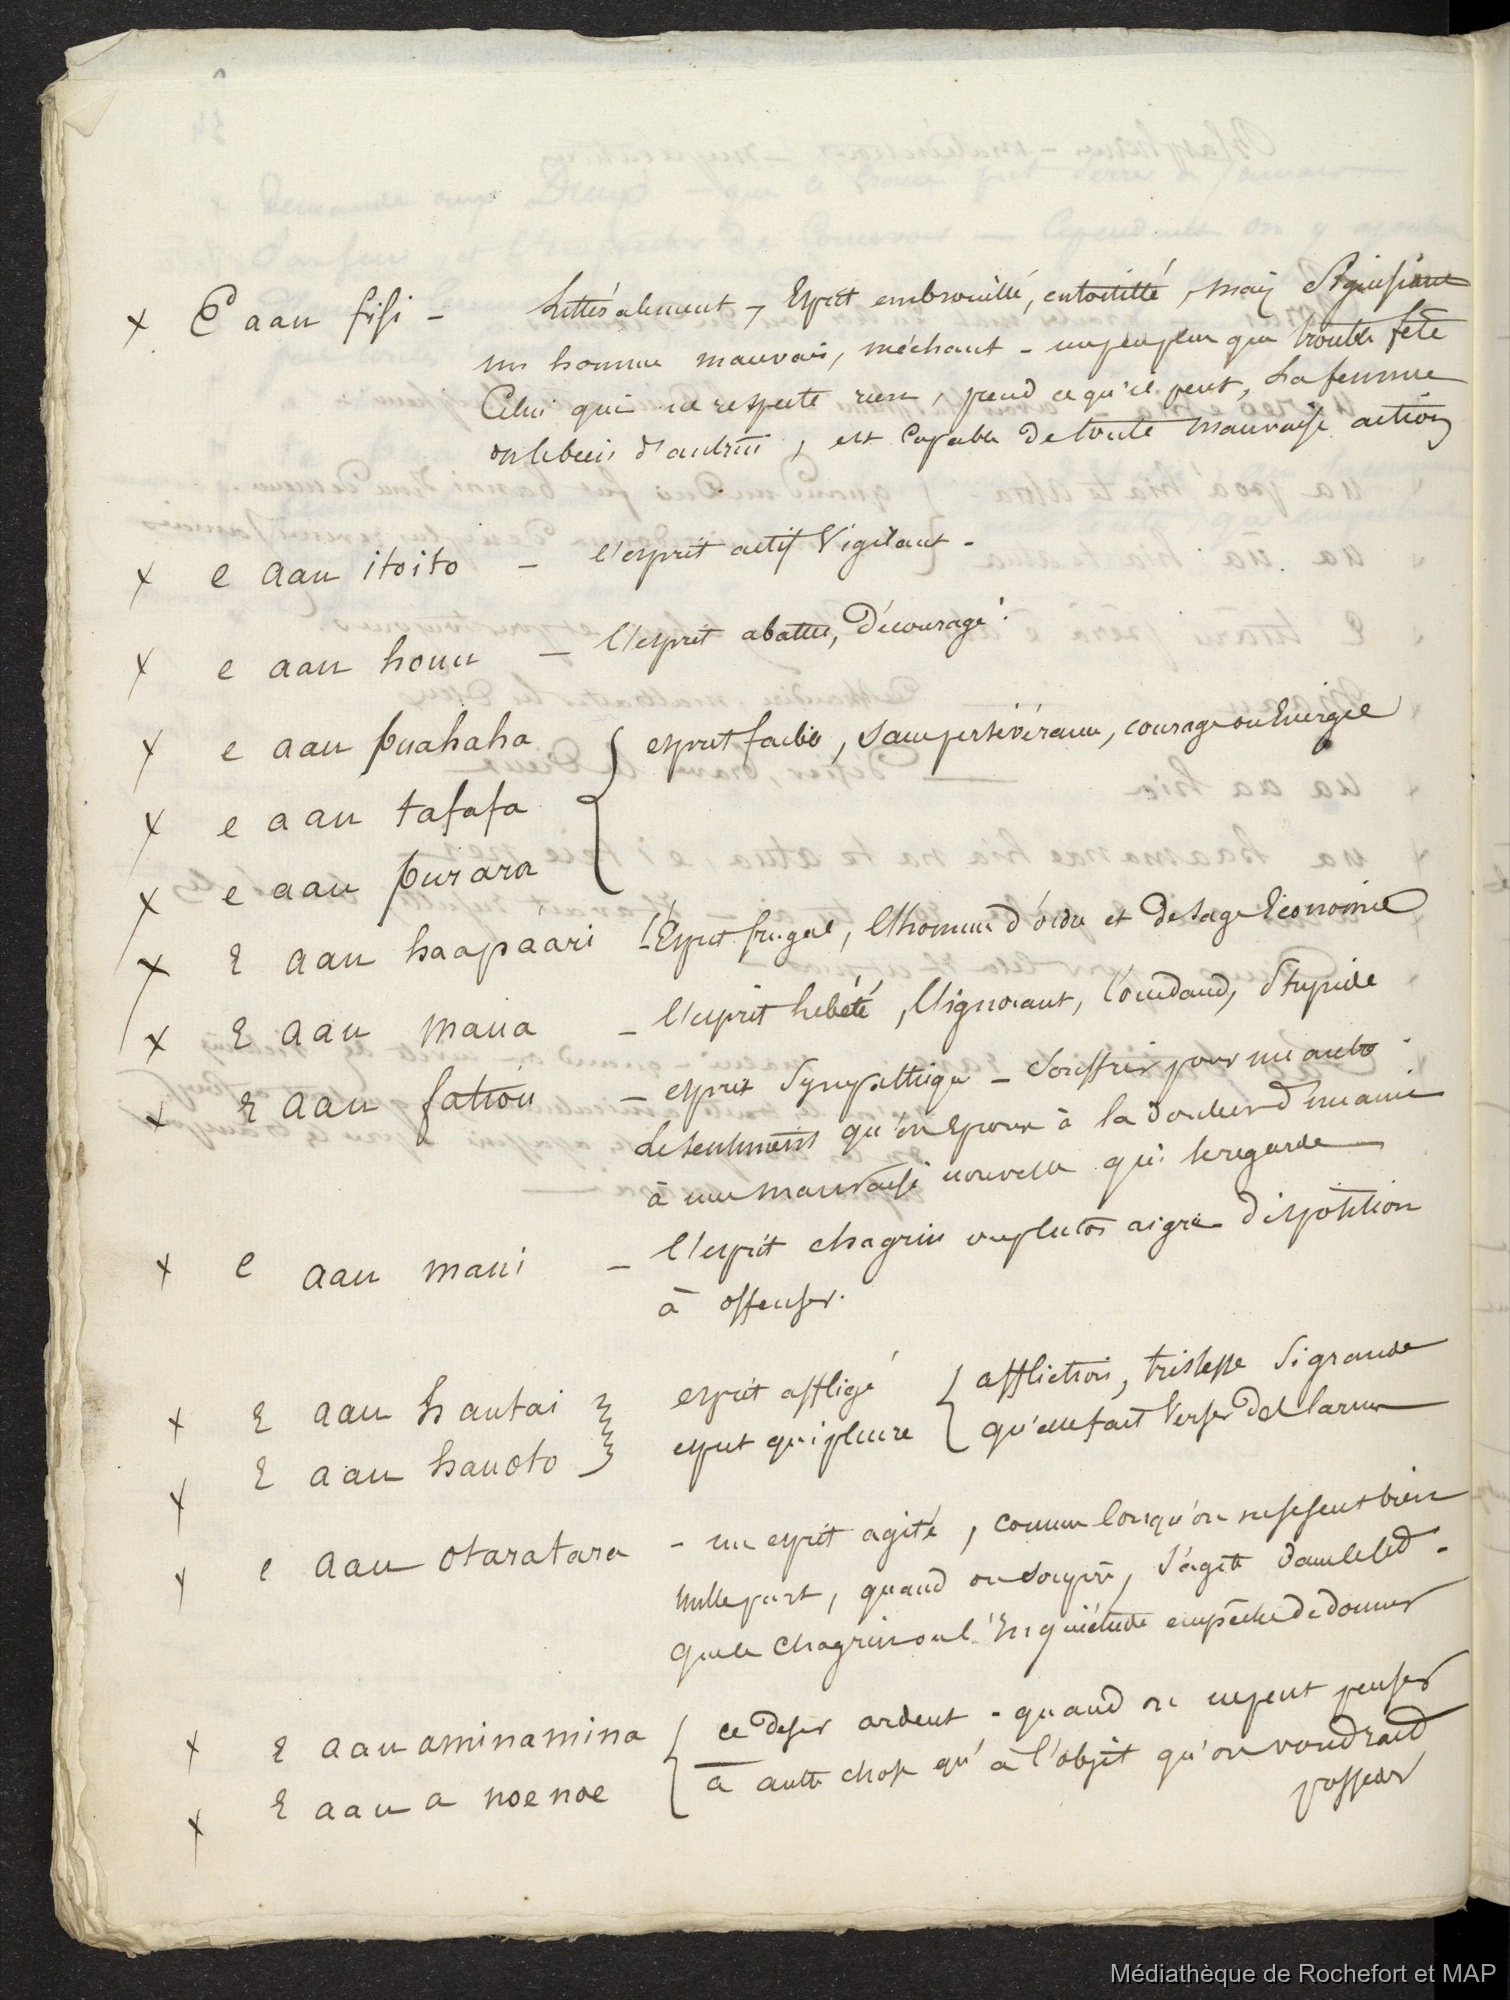 x E aau fifi - Littéralement, Esprit embrouillé, entortillé, mais signifiant
un homme mauvais, méchant - un peu plus que trouble fête
Celui qui ne respecte rien, prend ce qu'il peut, la femme
ou le bien d'autrui, est capable de toute mauvaise action
x e aau itoito - l'esprit actif Vigilant -
x e aau houu - l'esprit abattu, Découragé.
x e aau puahaha { esprit faible, sans persévérance, courage ou Energie
x e aau tafafa
x e aau purara
x E aau haapaari l'Esprit frugal, l'homme d'ordre et de sage Economie
x E aau maua - l'esprit hébété, l'ignorant, lourdaud, Stupide
x E aau fatiou - esprit Sympathique - Souffrir pour un autre.
le sentiment qu'on Eprouve à la douleur d'un ami
à une mauvaise nouvelle qui le regarde
x e aau maui - l'esprit chagrin ou plutôt aigre Disposition
à offenser.
x E aau hautai } esprit affligé { affliction, tristesse Si grande
x E aau hauoto } esprit qui pleure { qu'elle fait Verser des larmes
x e aau otaratara - un esprit agité, comme lorsqu'on ne se sent bien
nulle part, quand on soupire, S'agite dans le lit -
que le chagrin ou l'Inquiétude empêche de donner
x E aau aminamina { ce desir ardent - quand on ne peut penser
x E aau a noenoe { à autre chose qu'à l'objet qu'on voudrait
posseder
Médiathèque de Rochefort et MAP